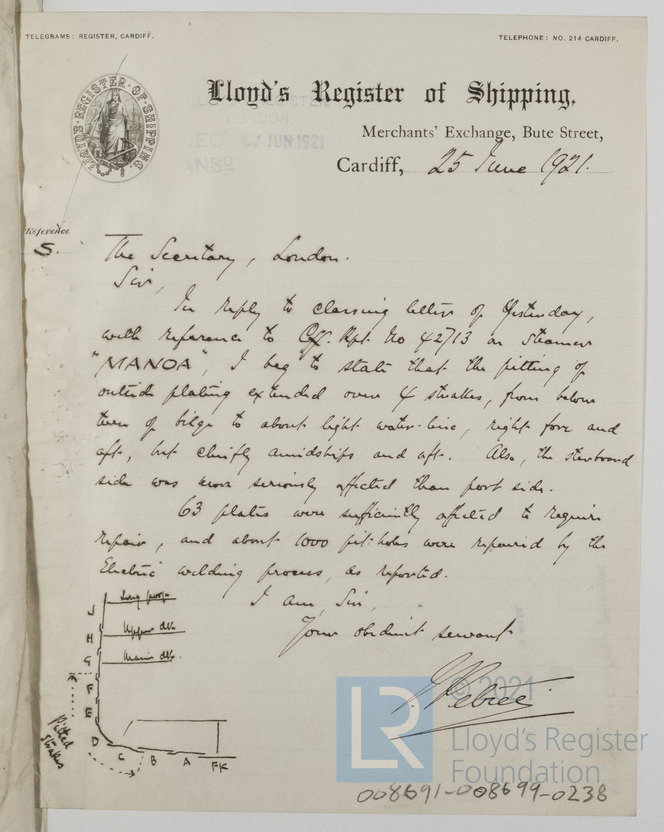 TELEGRAMS: REGISTER, CARDIFF.
TELEPHONE: NO. 214 CARDIFF.
LLOYD'S REGISTER OF SHIPPING
Lloyd's Register of Shipping,
7 JUN 1921
Merchants' Exchange, Bute Street,
Cardiff, 25 June 1921.
Reference
S.
The Secretary, London.
Sir,
In reply to classing letter of yesterday,
with reference to Cff. Rpt. No 42713 on Steamer
"MANOA", I beg to state that the pitting of
outside plating extended over 4 strakes, from below
turn of bilge to about light water-line, right fore and
aft, but chiefly amidships and aft. Also, the starboard
side was more seriously affected than port side.
63 plates were sufficiently affected to require
repair, and about 1000 pit-holes were repaired by the
Electric welding process, as reported.
I am, Sir,
Your obedient servant
Long poop
Upper dk.
Main dk.
J
H
G
F
E
D
C
B
A
FK
Pitted
strakes
© 2021
LR
Lloyd's Register
Foundation
008691-008699-0238